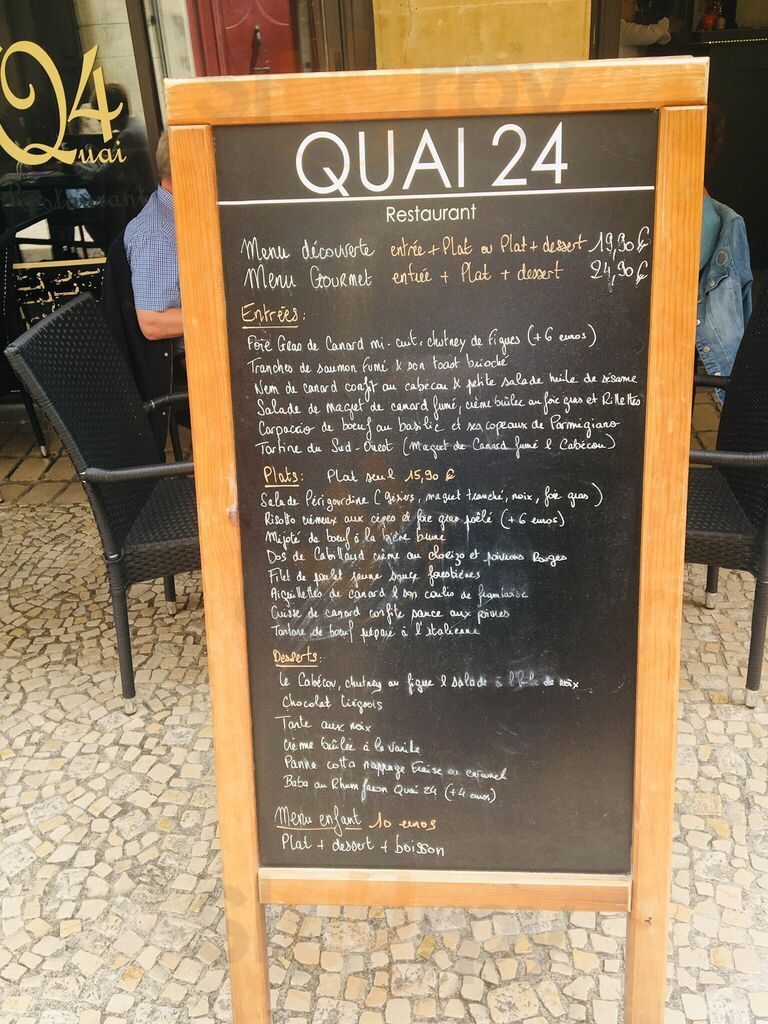 24
Quai
Restaurant
QUAI 24
Restaurant
Menu découverte entrée + Plat ou Plat + dessert 19,90 €
Menu Gourmet entrée + Plat + dessert 24,90 €
Entrées:
Foie Gras de Canard mi-cuit, chutney de Figues (+6 euros)
Tranches de saumon fumé & son toast brioché
Nem de canard confit au cabécou & petite salade huile de sésame
Salade de magret de canard fumé, crème brûlée au foie gras et Rillettes
Carpaccio de boeuf au basilic et ses copeaux de Parmigiano
Tartine du Sud-Ouest (Magret de Canard fumé & Cabécou)
Plats: Plat seul 15,90 €
Salade Périgourdine (gésiers, magret tranché, noix, foie gras)
Risotto crémeux aux cèpes et foie gras poêlé (+6 euros)
Mijoté de boeuf à la bière brune
Dos de Cabillaud crème au chorizo et poivrons Rouges
Filet de poulet jaune sauce forestières
Aiguillettes de canard & son coulis de framboise
Cuisse de canard confite sauce aux poivres
Tartare de boeuf préparé à l'italienne
Desserts:
Le Cabécou, chutney au figue & salade à l'huile de noix
Chocolat Liégeois
Tarte aux noix
Crème brûlée à la vanille
Panna cotta nappage fraise ou caramel
Baba au Rhum façon Quai 24 (+4 euros)
Menu enfant 10 euros
Plat + dessert + boisson